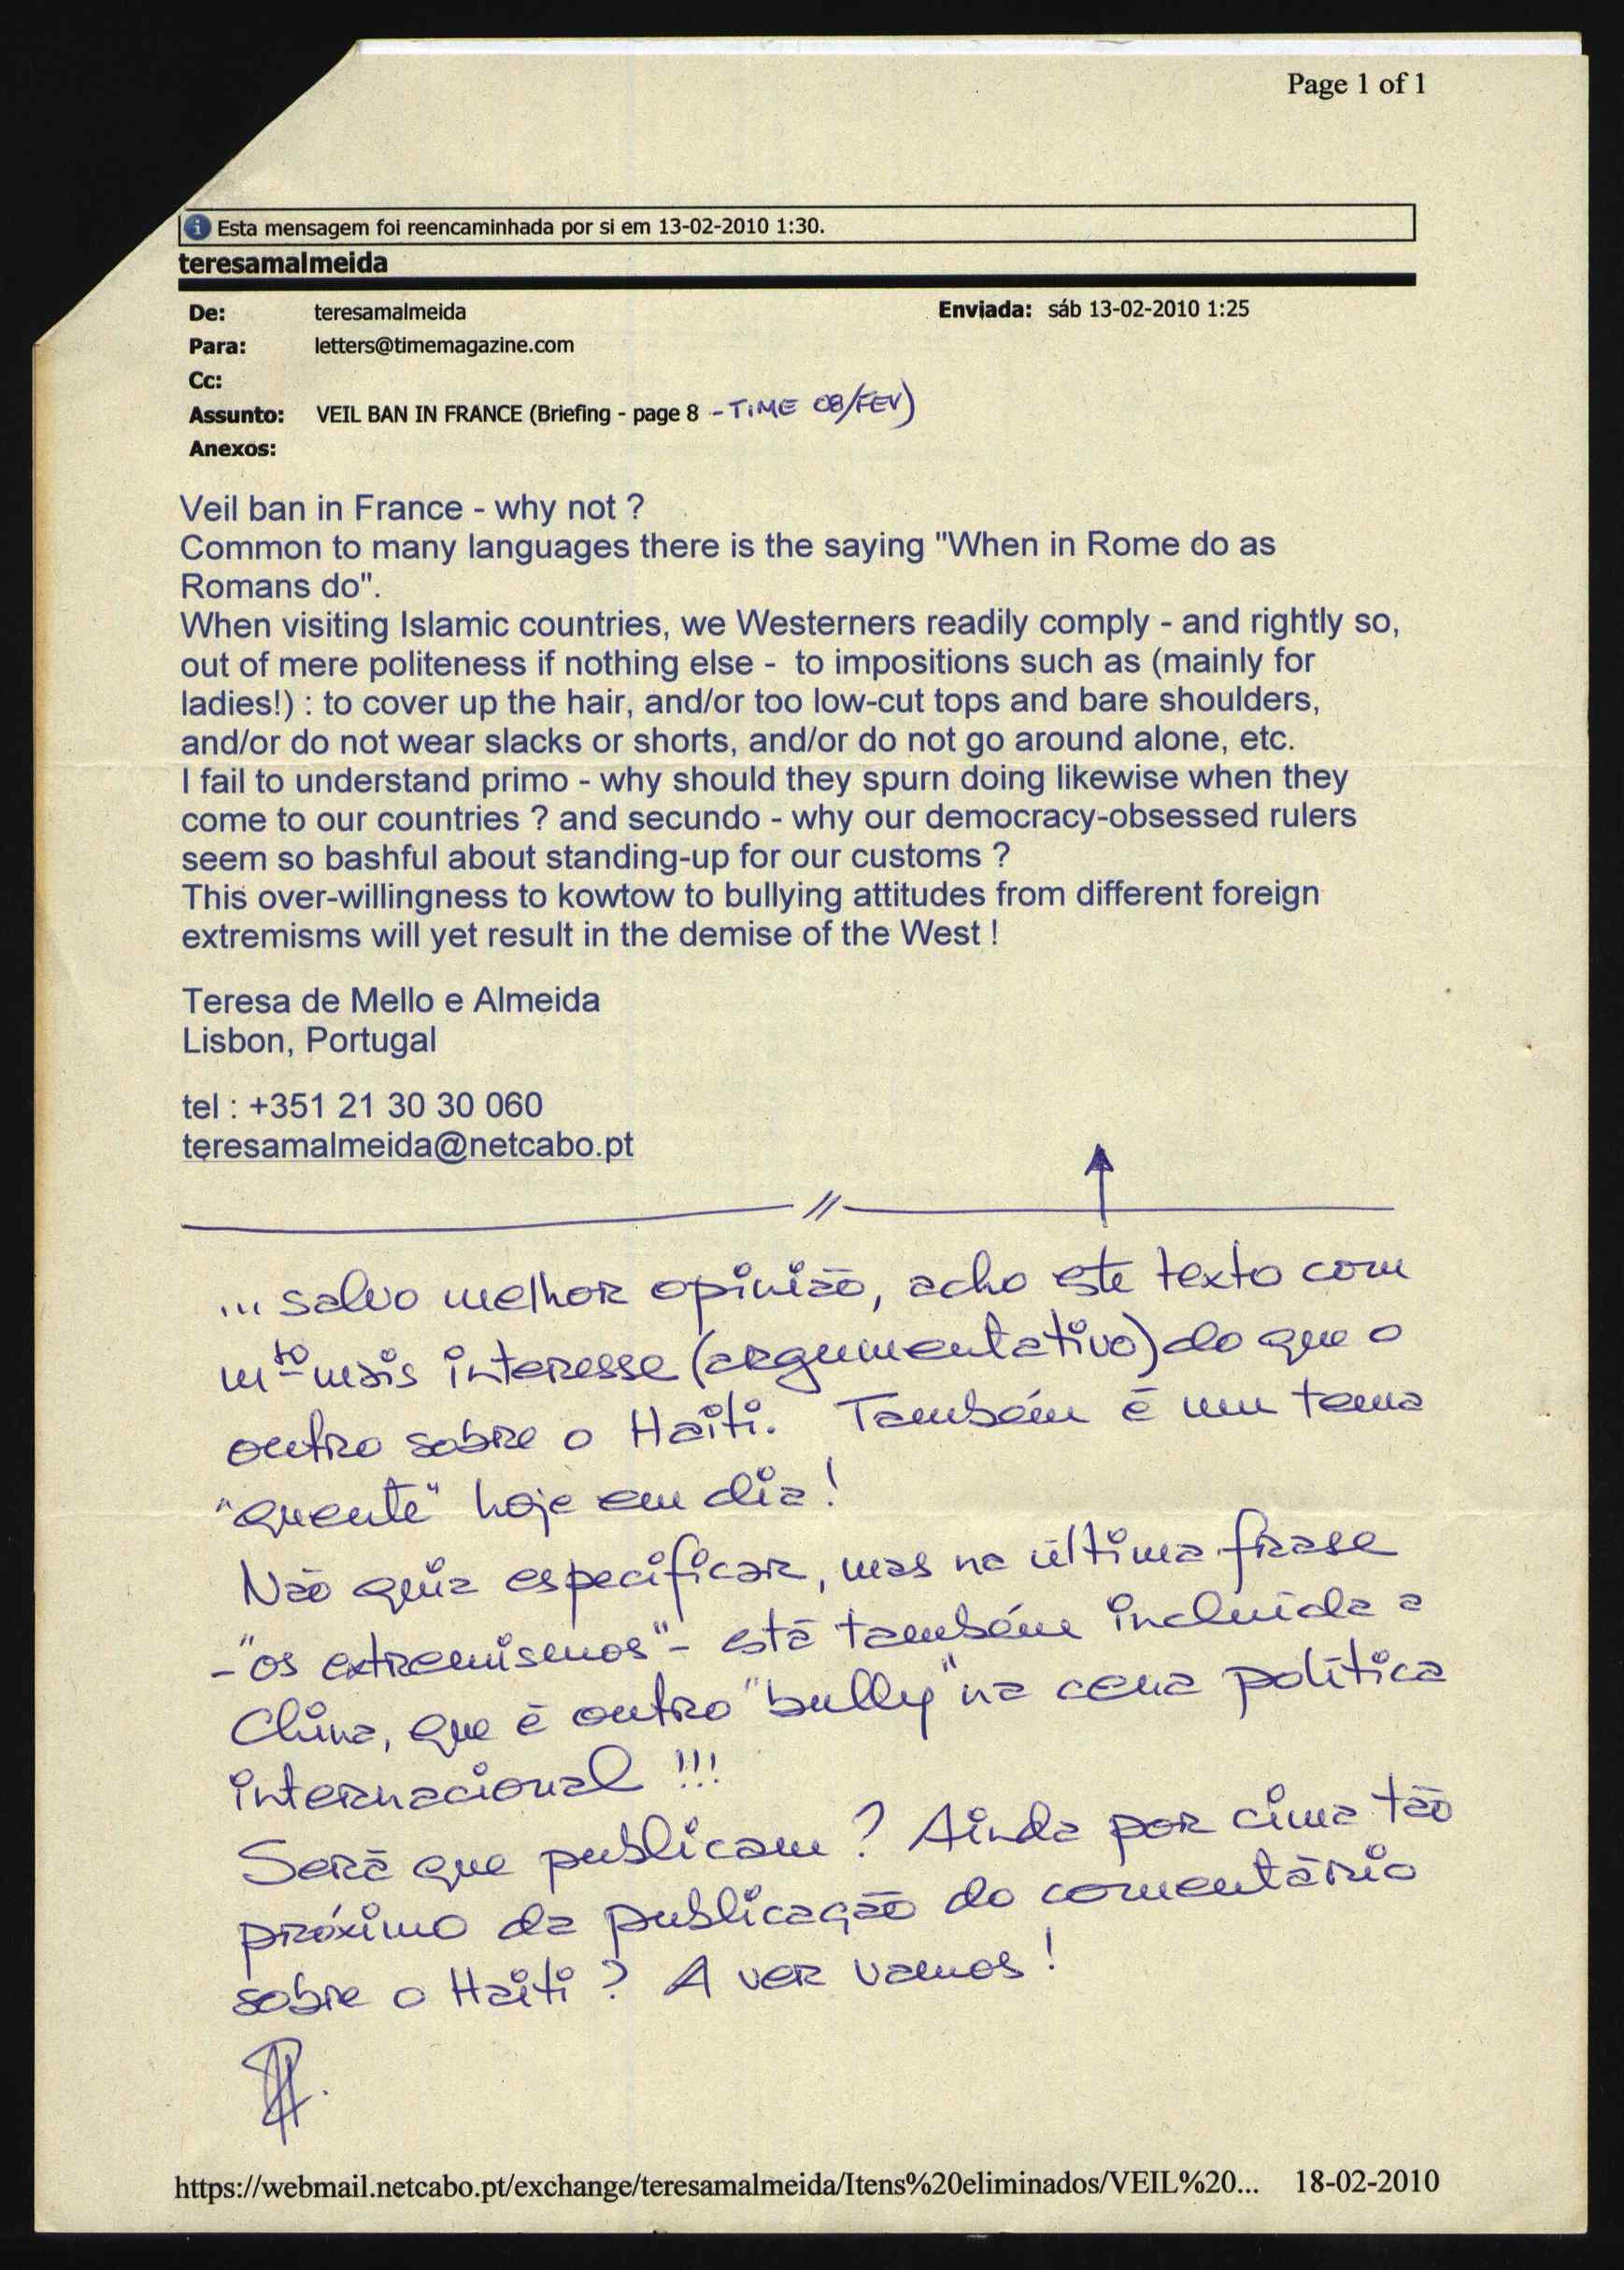 Page 1 of 1
Esta mensagem foi reencaminhada por si em 13-02-2010 1:30.
teresamalmeida
De: teresamalmeida Enviada: sáb 13-02-2010 1:25
Para: letters@timemagazine.com
Cc:
Assunto: VEIL BAN IN FRANCE (Briefing - page 8 - TIME 08/FEV)
Anexos:
Veil ban in France - why not ?
Common to many languages there is the saying "When in Rome do as
Romans do".
When visiting Islamic countries, we Westerners readily comply - and rightly so,
out of mere politeness if nothing else - to impositions such as (mainly for
ladies!) : to cover up the hair, and/or too low-cut tops and bare shoulders,
and/or do not wear slacks or shorts, and/or do not go around alone, etc.
I fail to understand primo - why should they spurn doing likewise when they
come to our countries ? and secundo - why our democracy-obsessed rulers
seem so bashful about standing-up for our customs ?
This over-willingness to kowtow to bullying attitudes from different foreign
extremisms will yet result in the demise of the West !
Teresa de Mello e Almeida
Lisbon, Portugal
tel : +351 21 30 30 060
teresamalmeida@netcabo.pt
... salvo melhor opinião, acho este texto com
mto mais interesse (argumentativo) do que o
outro sobre o Haiti. Também é um tema
"quente" hoje em dia!
Não quiz especificar, mas na última frase
- "os extremismos" - está também incluida a
China, que é outro "bully" na cena política
internacional !!!
Será que publicam ? Ainda por cima tão
próximo da publicação do comentário
sobre o Haiti ? A ver vamos !
https://webmail.netcabo.pt/exchange/teresamalmeida/Itens%20eliminados/VEIL%20... 18-02-2010